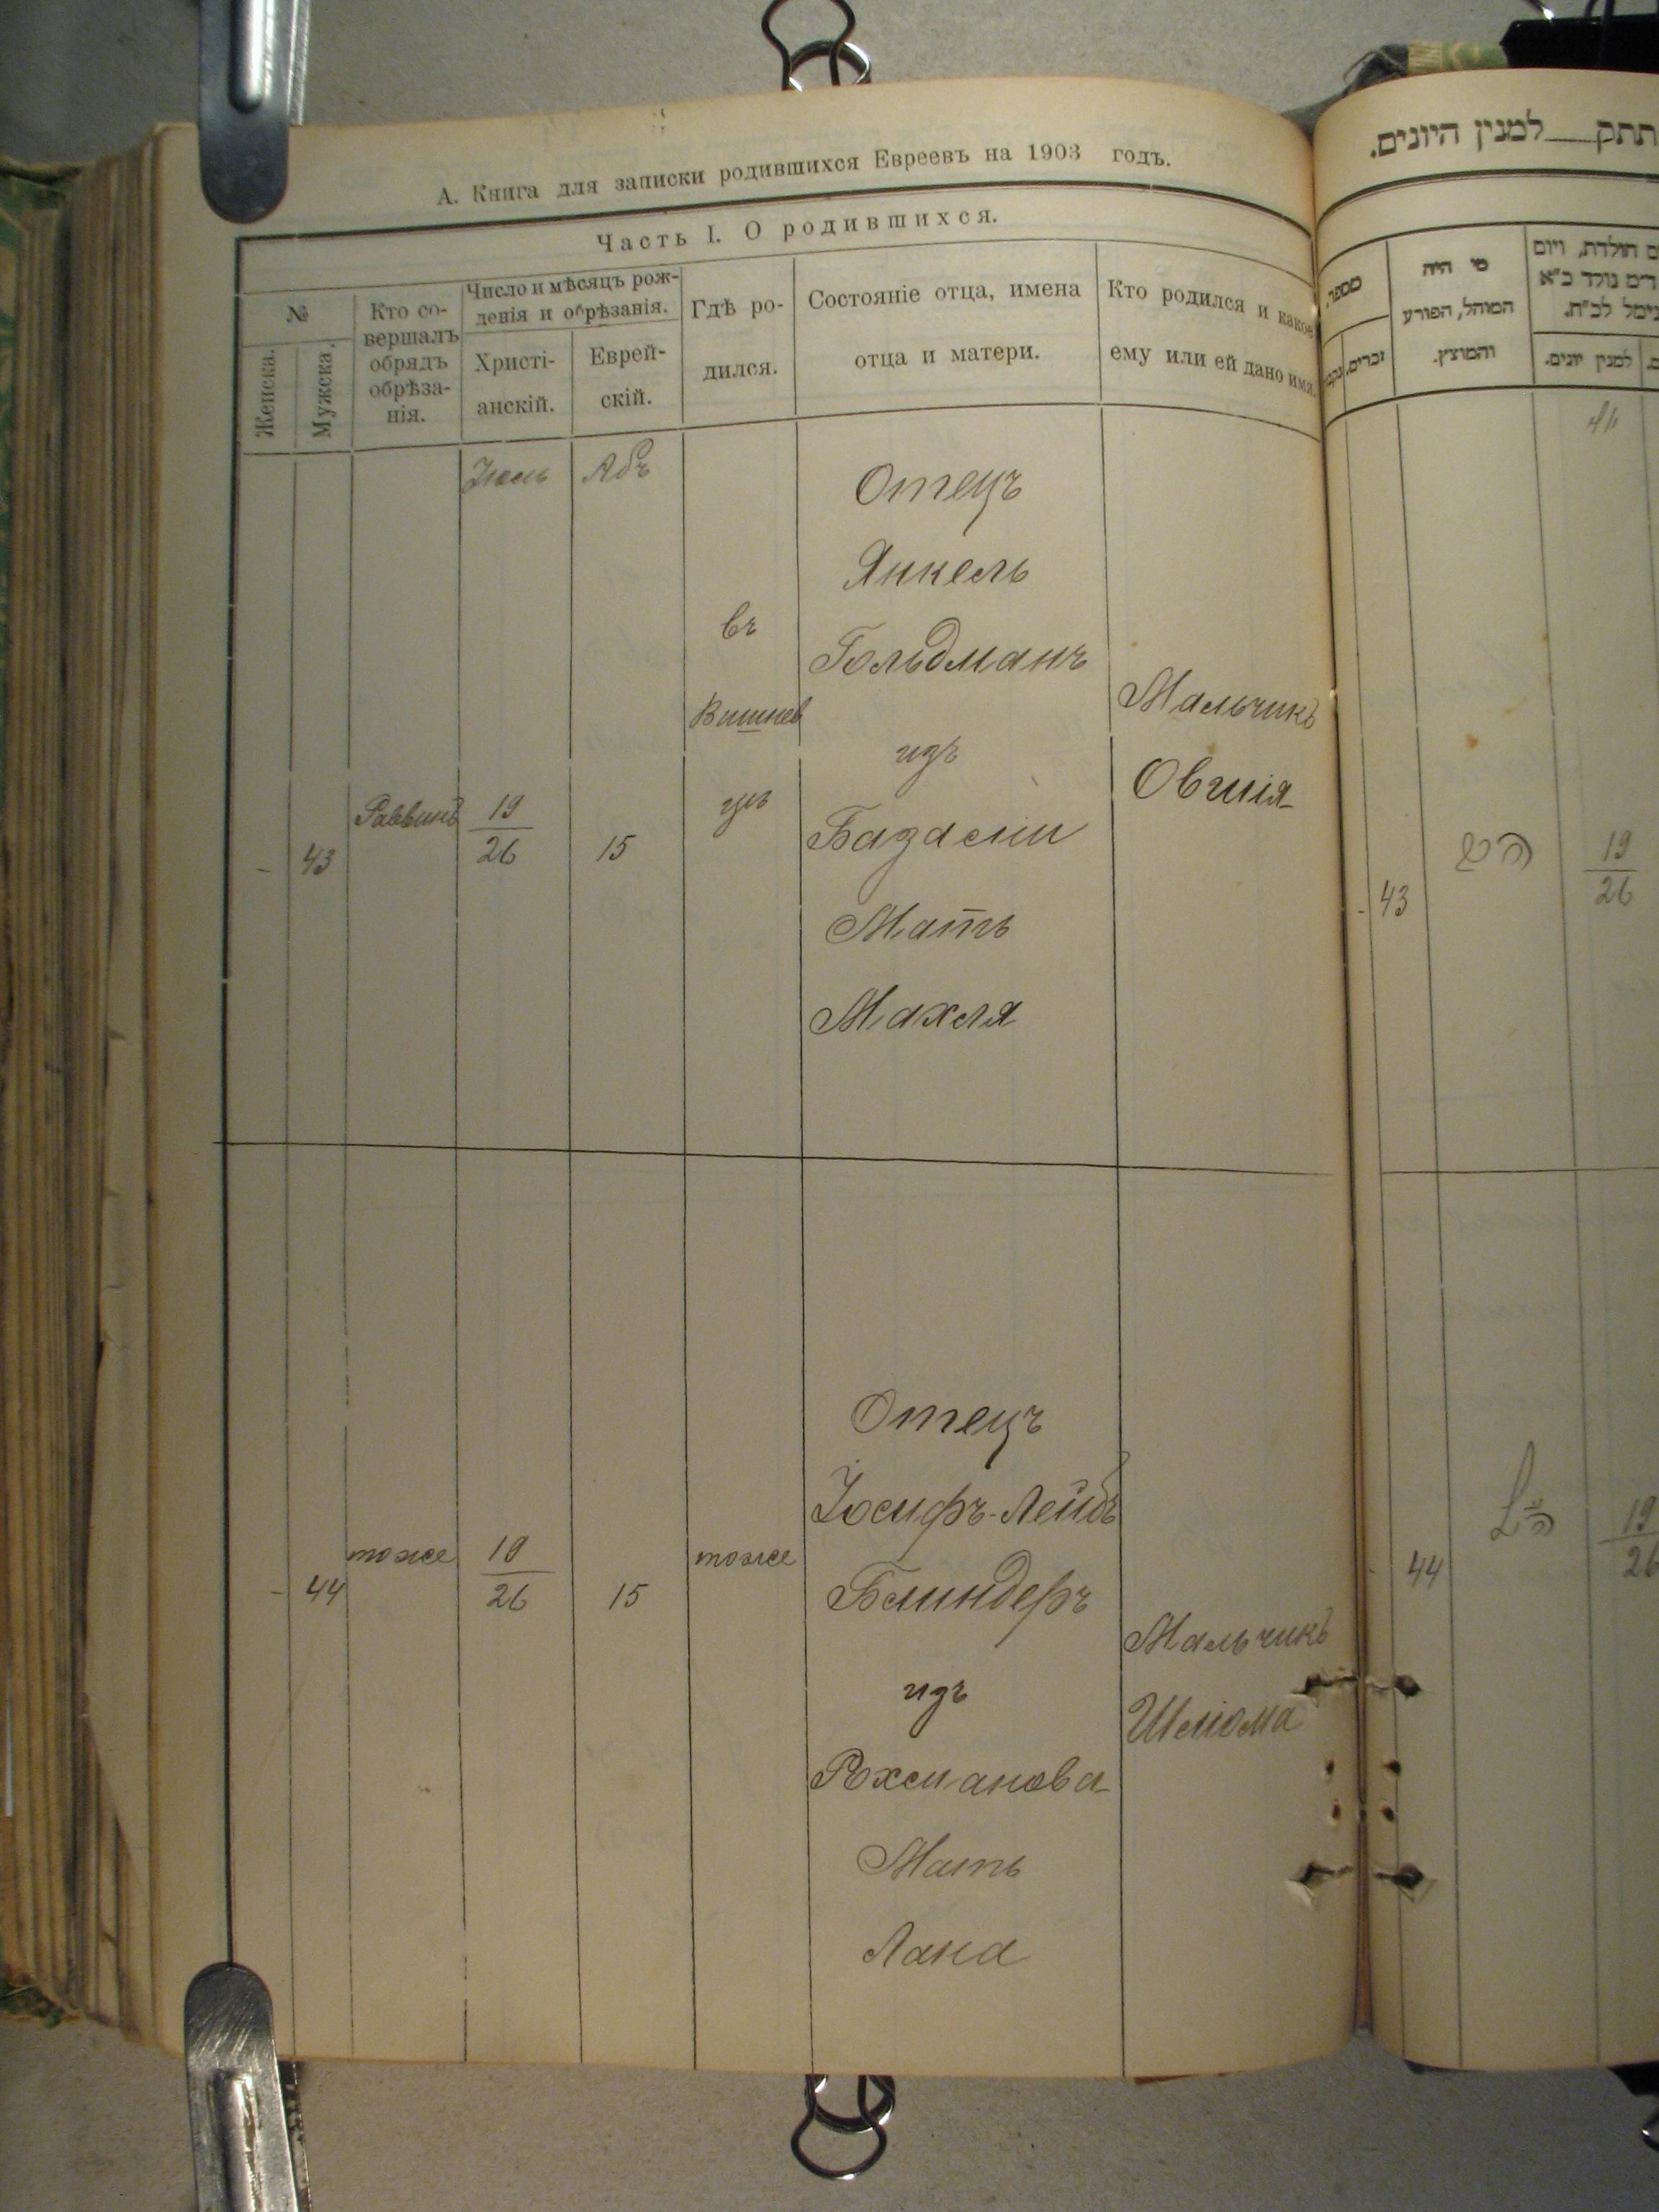 А. Книга для записки родившихся Евреевъ на 1903 годъ.
Часть I. О родившихся.
№
Женска.
Мужска.
Кто со-
вершалъ
обрядъ
обрѣза-
нія.
Число и мѣсяцъ рож-
денія и обрѣзанія.
Христі-
анскій.
Еврей-
скій.
Гдѣ ро-
дился.
Состояніе отца, имена
отца и матери.
Кто родился и какое
ему или ей дано имя.
Іюль
Абъ
- 43
Раввинъ
19
26
15
въ
Вишнев
цѣ
Отецъ
Янкель
Гольдманъ
изъ
Базаліи
Мать
Махля
Мальчикъ
Овшія
- 44
тоже
19
26
15
тоже
Отецъ
Іосифъ-Лейбъ
Блиндеръ
изъ
Рохманова
Мать
Лана
Мальчикъ
Шліома
תתק למנין היונים.
מספר.
זכרים.
מי היה
המוהל, הפורע
והמוצץ.
תולדת, ויום
נולד כ"א
נימל לכ"ח.
למנין יונים.
- 43
19
26
44
19
26